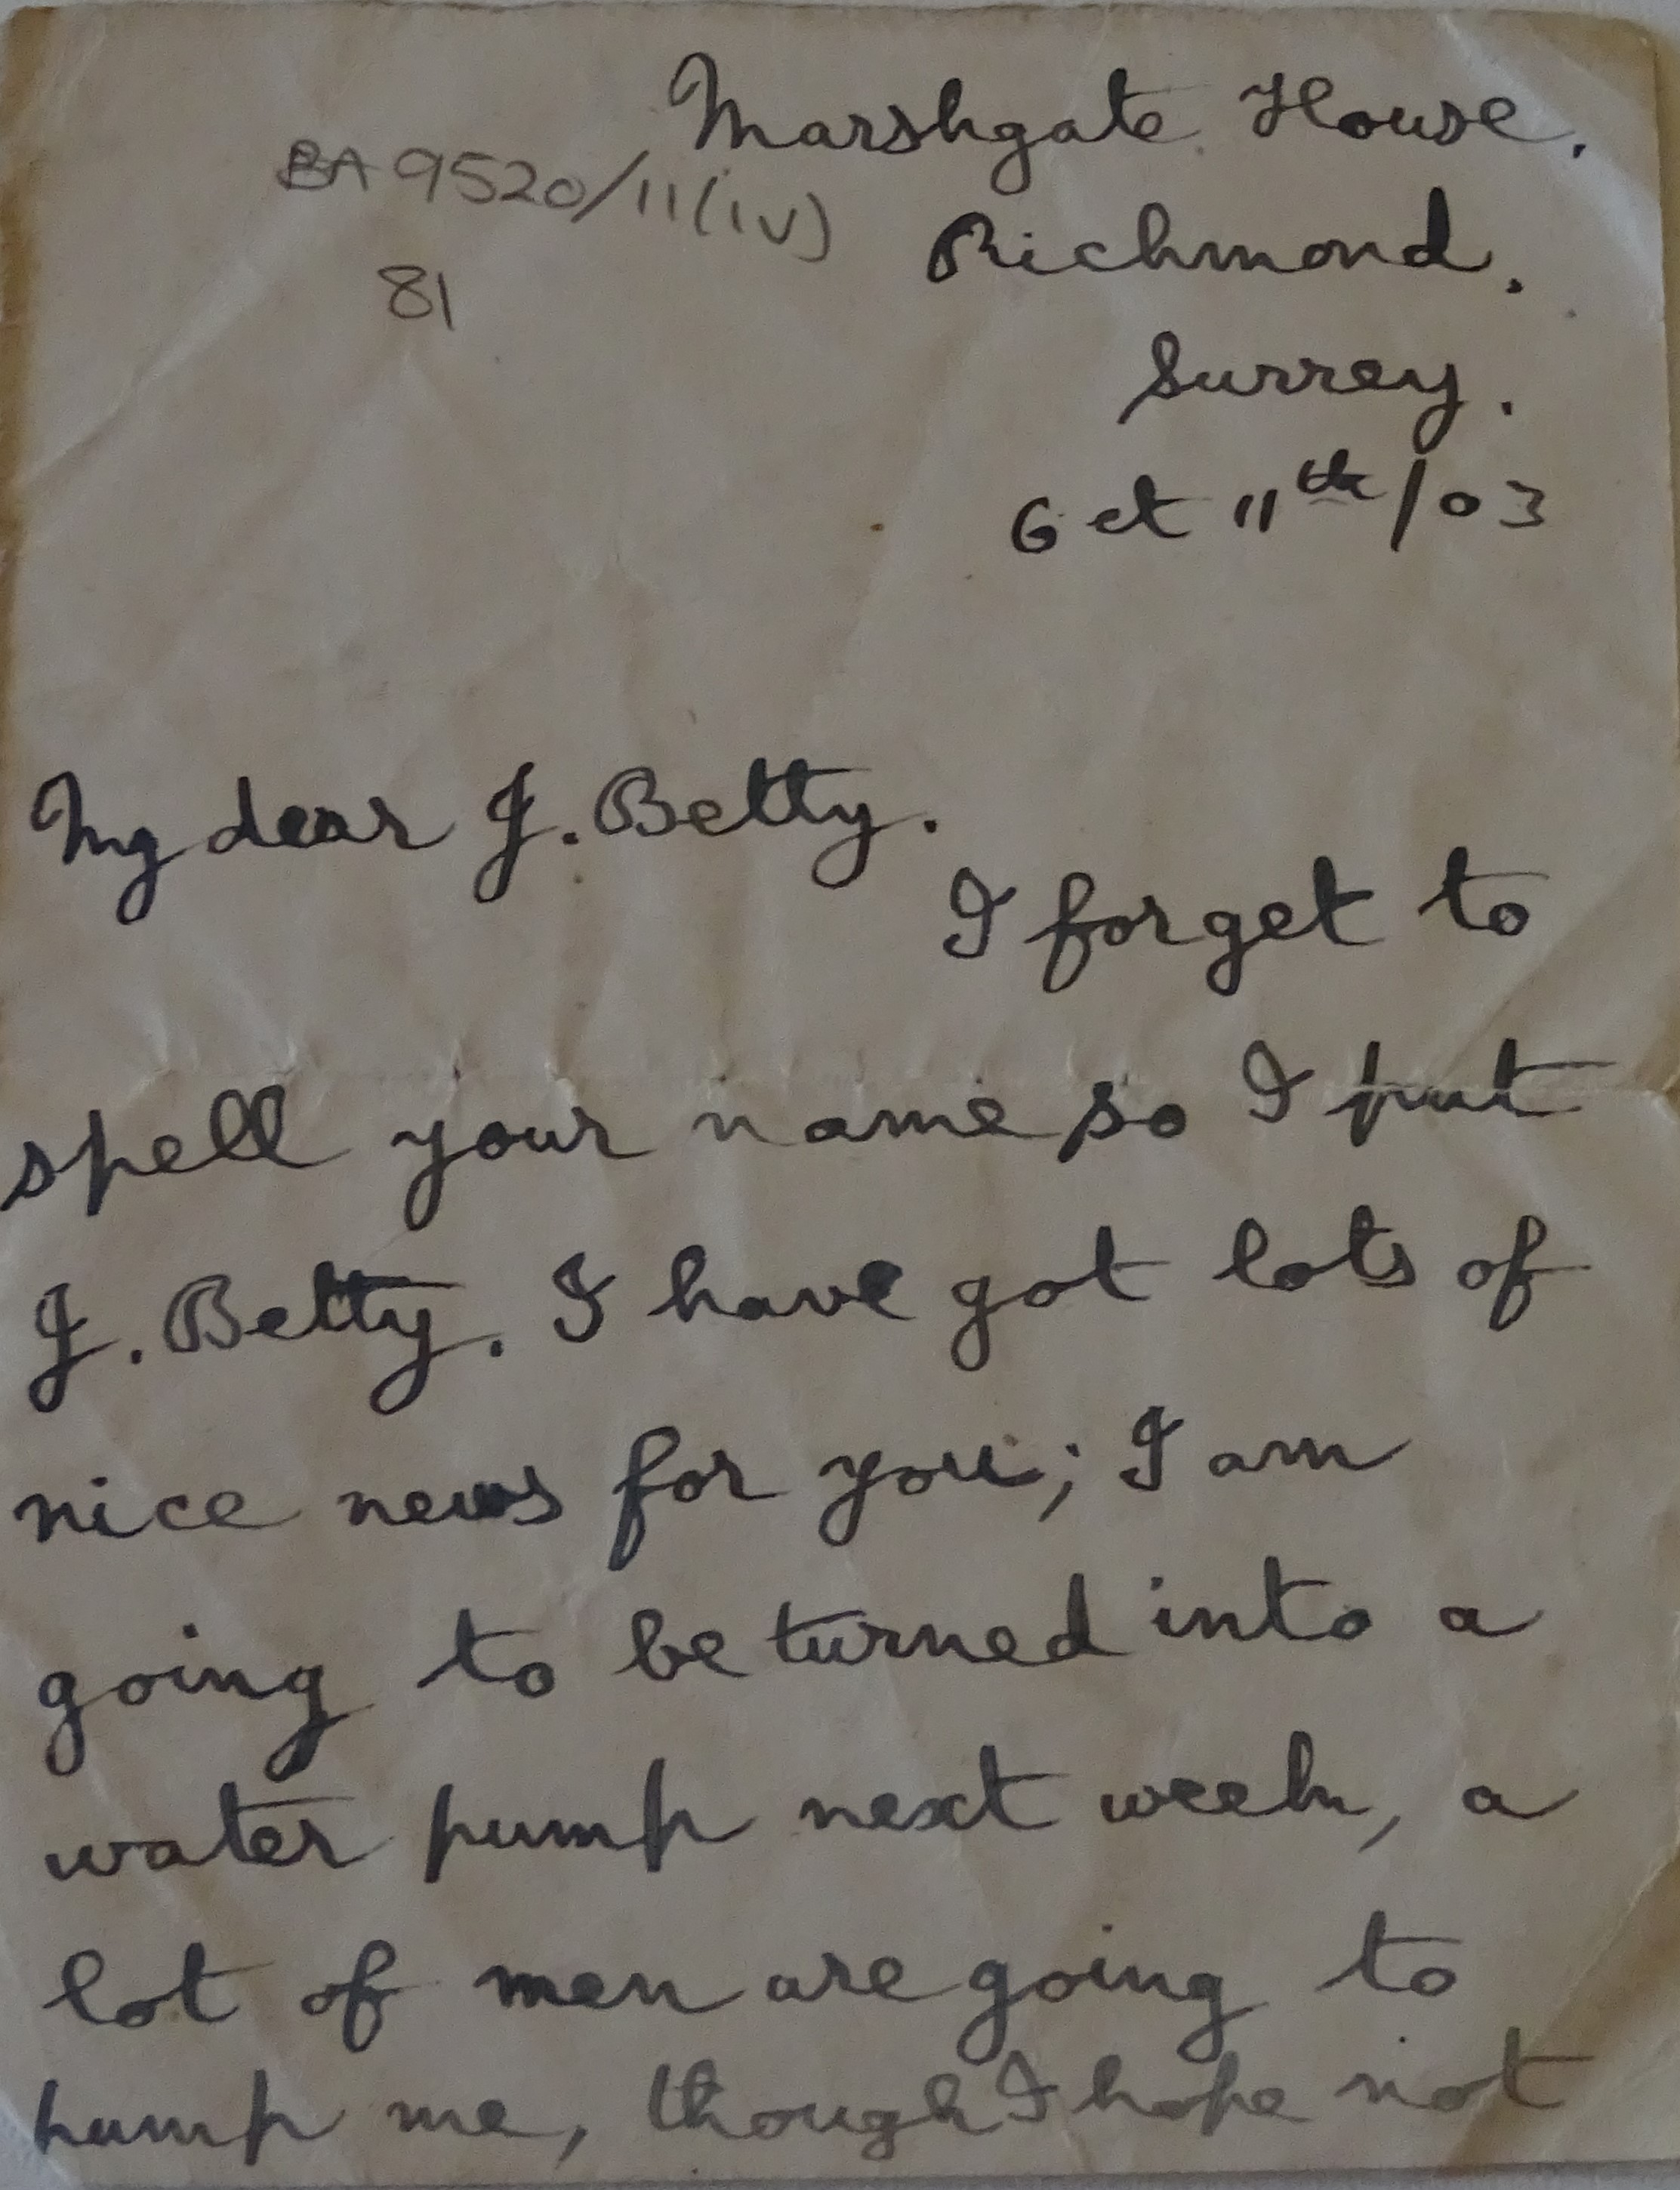 Marshgate House.
BA 9520/11(IV)
Richmond.
81
Surrey.
Oct 11th/03
My dear J. Betty.
I forget to
spell your name so I put
J. Betty. I have got lots of
nice news for you; I am
going to be turned into a
water pump next week, a
lot of men are going to
pump me, though I hope not